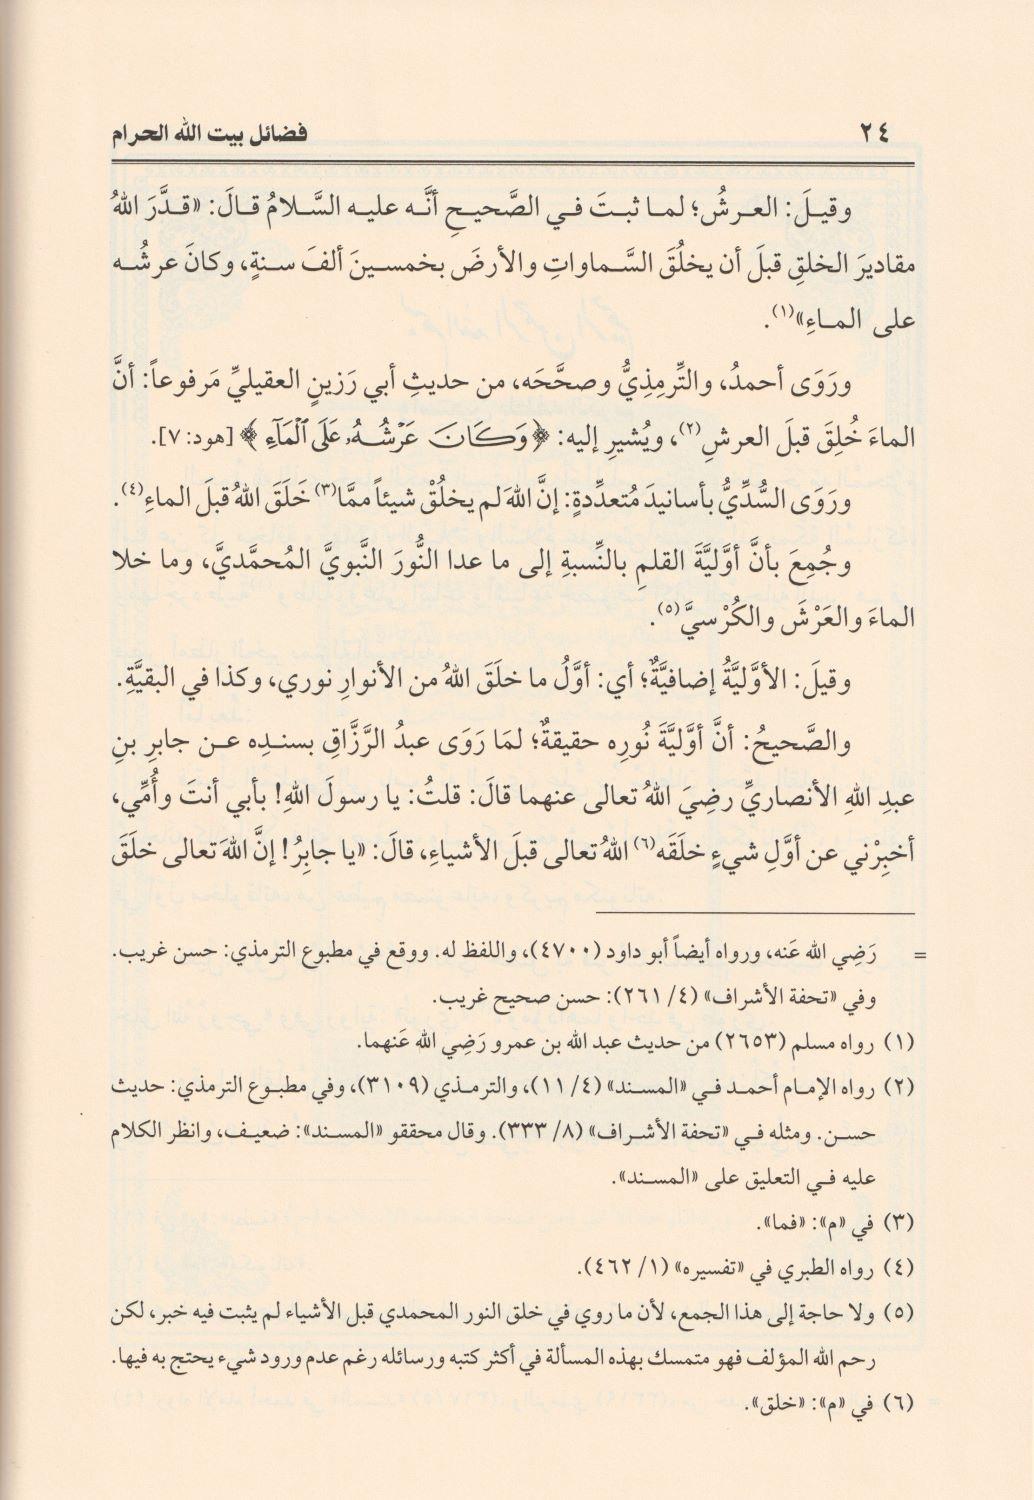 ٢٤
فضائل بيت الله الحرام
وقيلَ: العرشُ؛ لما ثبتَ في الصَّحيحِ أنَّه عليه السَّلامُ قالَ: «قدَّرَ اللهُ
مقاديرَ الخلقِ قبلَ أن يخلُقَ السَّماواتِ والأرضَ بخمسينَ ألفَ سنةٍ، وكانَ عرشُه
على الماءِ»(١).
ورَوَى أحمدُ، والتِّرمِذِيُّ وصحَّحَه، من حديثِ أبي رَزينٍ العقيليِّ مَرفوعاً: أنَّ
الماءَ خُلِقَ قبلَ العرشِ(٢)، ويُشيرِ إليه: ﴿وَكَانَ عَرْشُهُۥ عَلَى ٱلْمَآءِ﴾ [هود: ٧].
ورَوَى السُّدِّيُّ بأسانيدَ مُتعدِّدةٍ: إنَّ اللهَ لم يخلُقْ شيئاً ممَّا(٣) خَلَقَ اللهُ قبلَ الماءِ(٤).
وجُمِعَ بأنَّ أوَّليَّةَ القلمِ بالنِّسبةِ إلى ما عدا النُّورَ النَّبويَّ المُحمَّديَّ، وما خلا
الماءَ والعَرْشَ والكُرْسيَّ(٥).
وقيلَ: الأوَّليَّةُ إضافيَّةٌ؛ أي: أوَّلُ ما خلَقَ اللهُ من الأنوارِ نوري، وكذا في البقيَّةِ.
والصَّحيحُ: أنَّ أوَّليَّةَ نُورِه حقيقةٌ؛ لمَا رَوَى عبدُ الرَّزَّاقِ بسندِه عن جابرِ بنِ
عبدِ اللهِ الأنصاريِّ رضِيَ اللهُ تعالى عنهما قالَ: قلتُ: يا رسولَ اللهِ! بأبي أنتَ وأُمِّي،
أخبِرْني عن أوَّلِ شيءٍ خلَقَه(٦) اللهُ تعالى قبلَ الأشياءِ، قالَ: «يا جابِرُ! إنَّ اللهَ تعالى خلَقَ
= رَضِي الله عَنه، ورواه أيضاً أبو داود (٤٧٠٠)، واللفظ له. ووقع في مطبوع الترمذي: حسن غريب.
وفي «تحفة الأشراف» (٤/ ٢٦١): حسن صحيح غريب.
(١) رواه مسلم (٢٦٥٣) من حديث عبد الله بن عمرو رَضِي الله عَنهما.
(٢) رواه الإمام أحمد في «المسند» (٤/ ١١)، والترمذي (٣١٠٩)، وفي مطبوع الترمذي: حديث
حسن. ومثله في «تحفة الأشراف» (٨/ ٣٣٣). وقال محققو «المسند»: ضعيف، وانظر الكلام
عليه في التعليق على «المسند».
(٣) في «م»: «فما».
(٤) رواه الطبري في «تفسيره» (١/ ٤٦٢).
(٥) ولا حاجة إلى هذا الجمع، لأن ما روي في خلق النور المحمدي قبل الأشياء لم يثبت فيه خبر، لكن
رحم الله المؤلف فهو متمسك بهذه المسألة في أكثر كتبه ورسائله رغم عدم ورود شيء يحتج به فيها.
(٦) في «م»: «خلق».